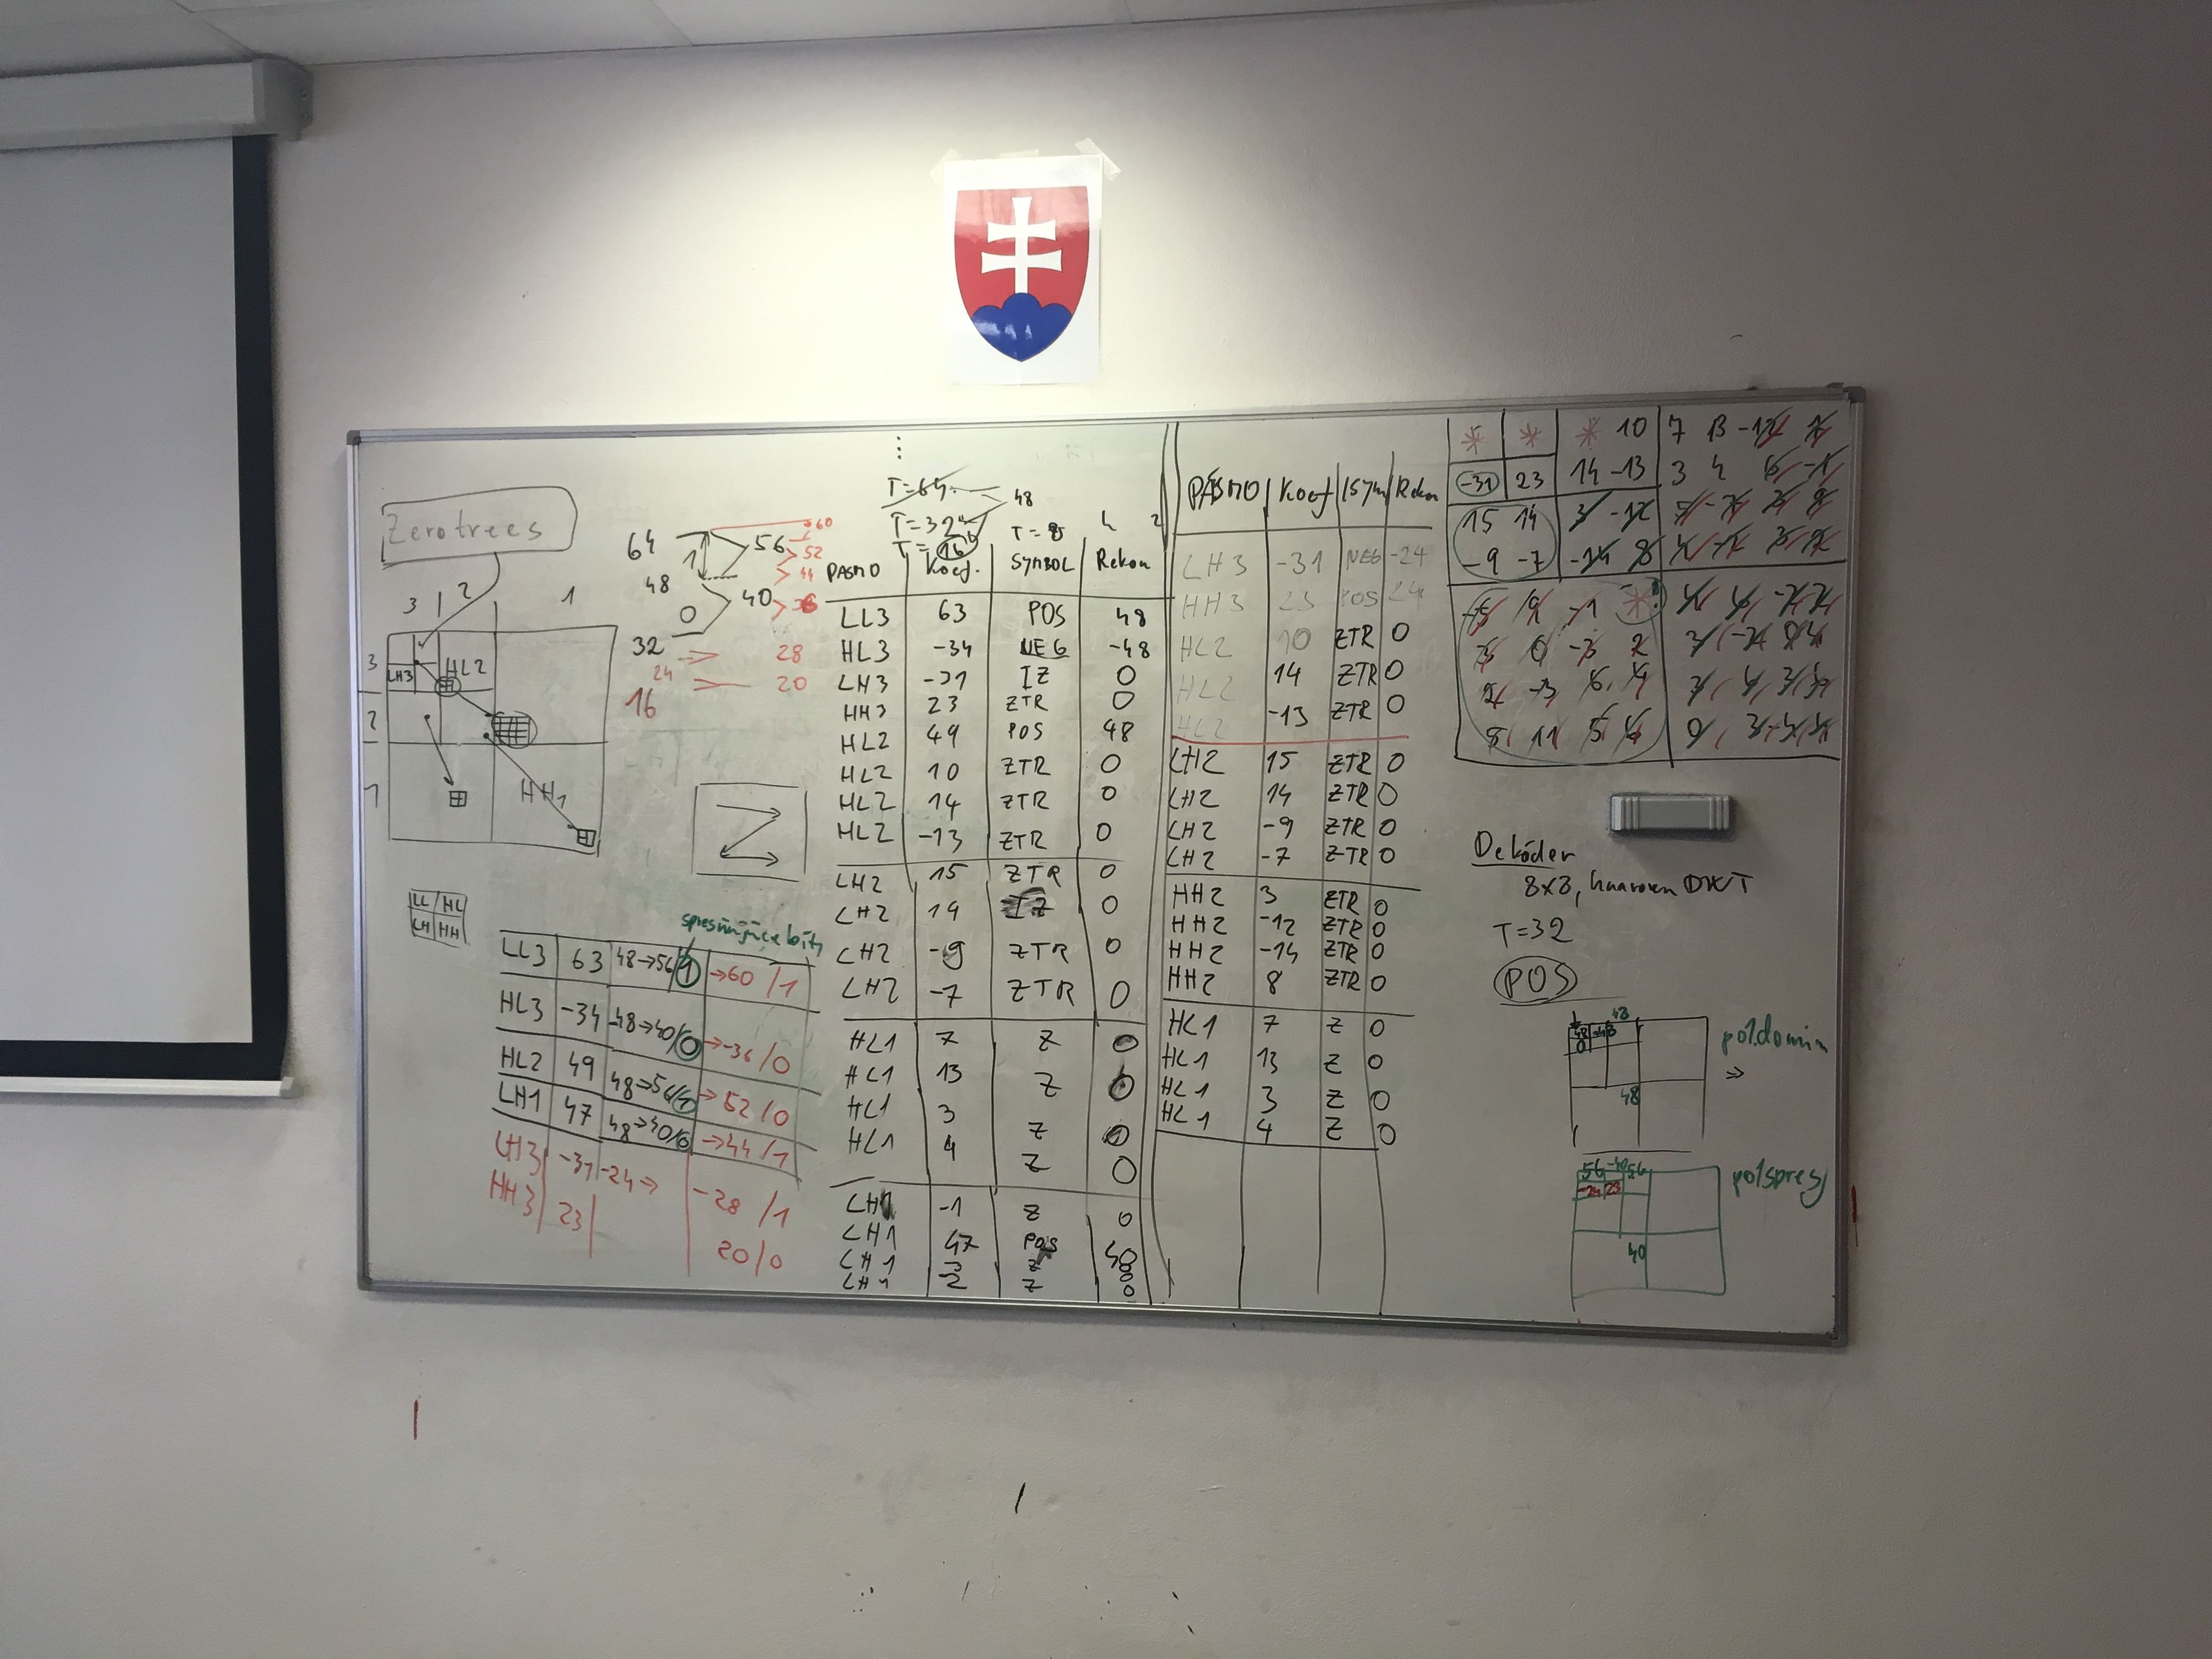 Zerotrees
3 2 1
3 LH3 HL2
2
1 HH1
LL HL
LH HH
64 56 60
52
48 44
0 40 36
32 28
24
16 20
T=64
T=32 48
T=16 T=8
PASMO Koef. SYMBOL Rekon
LL3 63 POS 48
HL3 -34 NEG -48
LH3 -31 IZ 0
HH3 23 ZTR 0
HL2 49 POS 48
HL2 10 ZTR 0
HL2 14 ZTR 0
HL2 -13 ZTR 0
LH2 15 ZTR 0
LH2 14 IZ 0
LH2 -9 ZTR 0
LH2 -7 ZTR 0
HL1 7 Z 0
HL1 13 Z 0
HL1 3 Z 0
HL1 4 Z 0
LH1 -1 Z 0
LH1 47 POS 48
LH1 -3 Z 0
LH1 2 Z 0
spresňujúce bity
LL3 63 48→56/1 →60/1
HL3 -34 -48→40/0 →-36/0
HL2 49 48→56/1 →52/0
LH1 47 48→40/0 →44/1
LH3 -31 -24→ -28/1
HH3 23 20/0
PÁSMO Koef Sym Rekon
LH3 -31 NEG -24
HH3 23 POS 24
HL2 10 ZTR 0
HL2 14 ZTR 0
HL2 -13 ZTR 0
LH2 15 ZTR 0
LH2 14 ZTR 0
LH2 -9 ZTR 0
LH2 -7 ZTR 0
HH2 3 ZTR 0
HH2 -12 ZTR 0
HH2 -14 ZTR 0
HH2 8 ZTR 0
HL1 7 Z 0
HL1 13 Z 0
HL1 3 Z 0
HL1 4 Z 0
* * * 10 7 13 -12
-31 23 14 -13 3 4 6 -1
15 14 3 -12
-9 -7 -14 8
-5 9 -1 *
3 0 -3 2
2 -3 6 4
5 11 5 6
Dekóder
8x8, haarova DWT
T=32
POS
48
48 -48
0
48
pol.domin
⇒
56 -40 56
-24 23
40
pol spresj